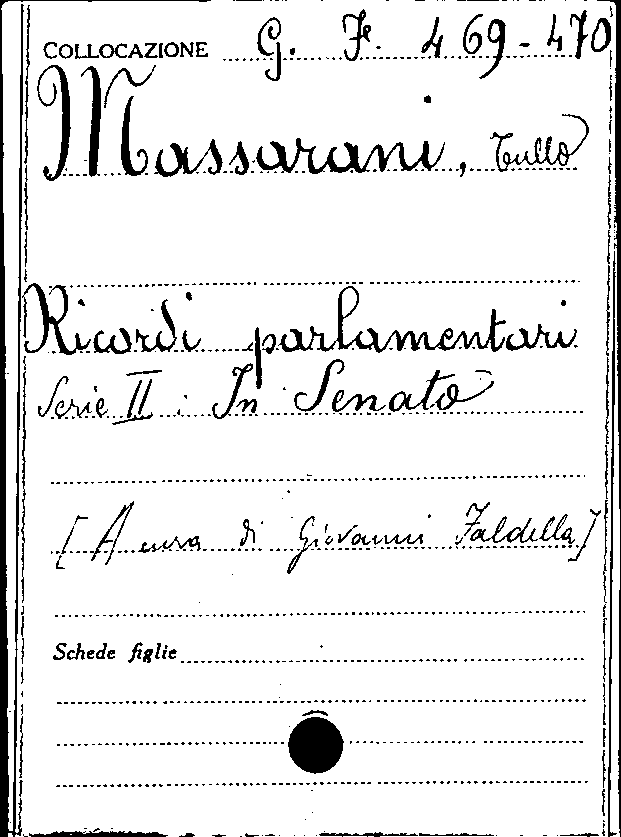 COLLOCAZIONE G. F. 469-470
Massarani, Tullo
Ricordi parlamentari
Serie II: In Senato
[A cura di Giovanni Faldella]
Schede figlie